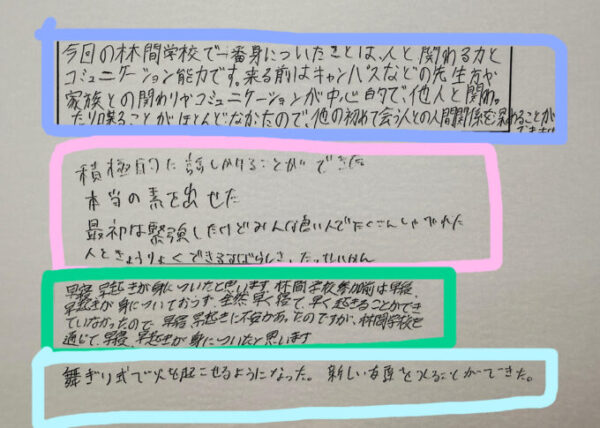 今回の林間学校で一番身についたことは、人と関わる力と
コミュニケーション能力です。来る前はキャンパスなどの先生方や
家族との関わりやコミュニケーションが中心的で、他人と関わっ
たり喋ることがほとんどなかたので、他の初めて会う人との人間関係を深めることが
積極的に話しかけることができた
本当の素を出せた
最初は緊張したけどみんな良い人でたくさんしゃべれた
人ときょうりょくできるすばらしさ、たっせいかん
早寝、早起きが身についたと思います。林間学校参加前は早寝、
早起きが身についておらず、全然早く寝て、早く起きることができ
ていなかったので、早寝、早起きに不安があったのですが、林間学校を
通じて、早寝、早起きが身についたと思います
舞ぎり式で火を起こせるようになった。 新しい友達をつくることができた。